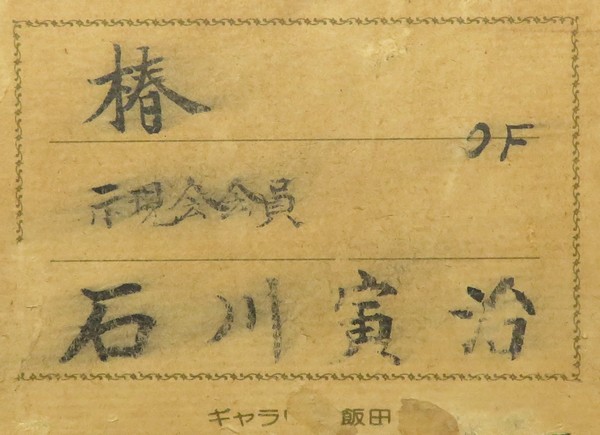 椿
0F
示現会会員
石川寅治
ギャラリ 飯田